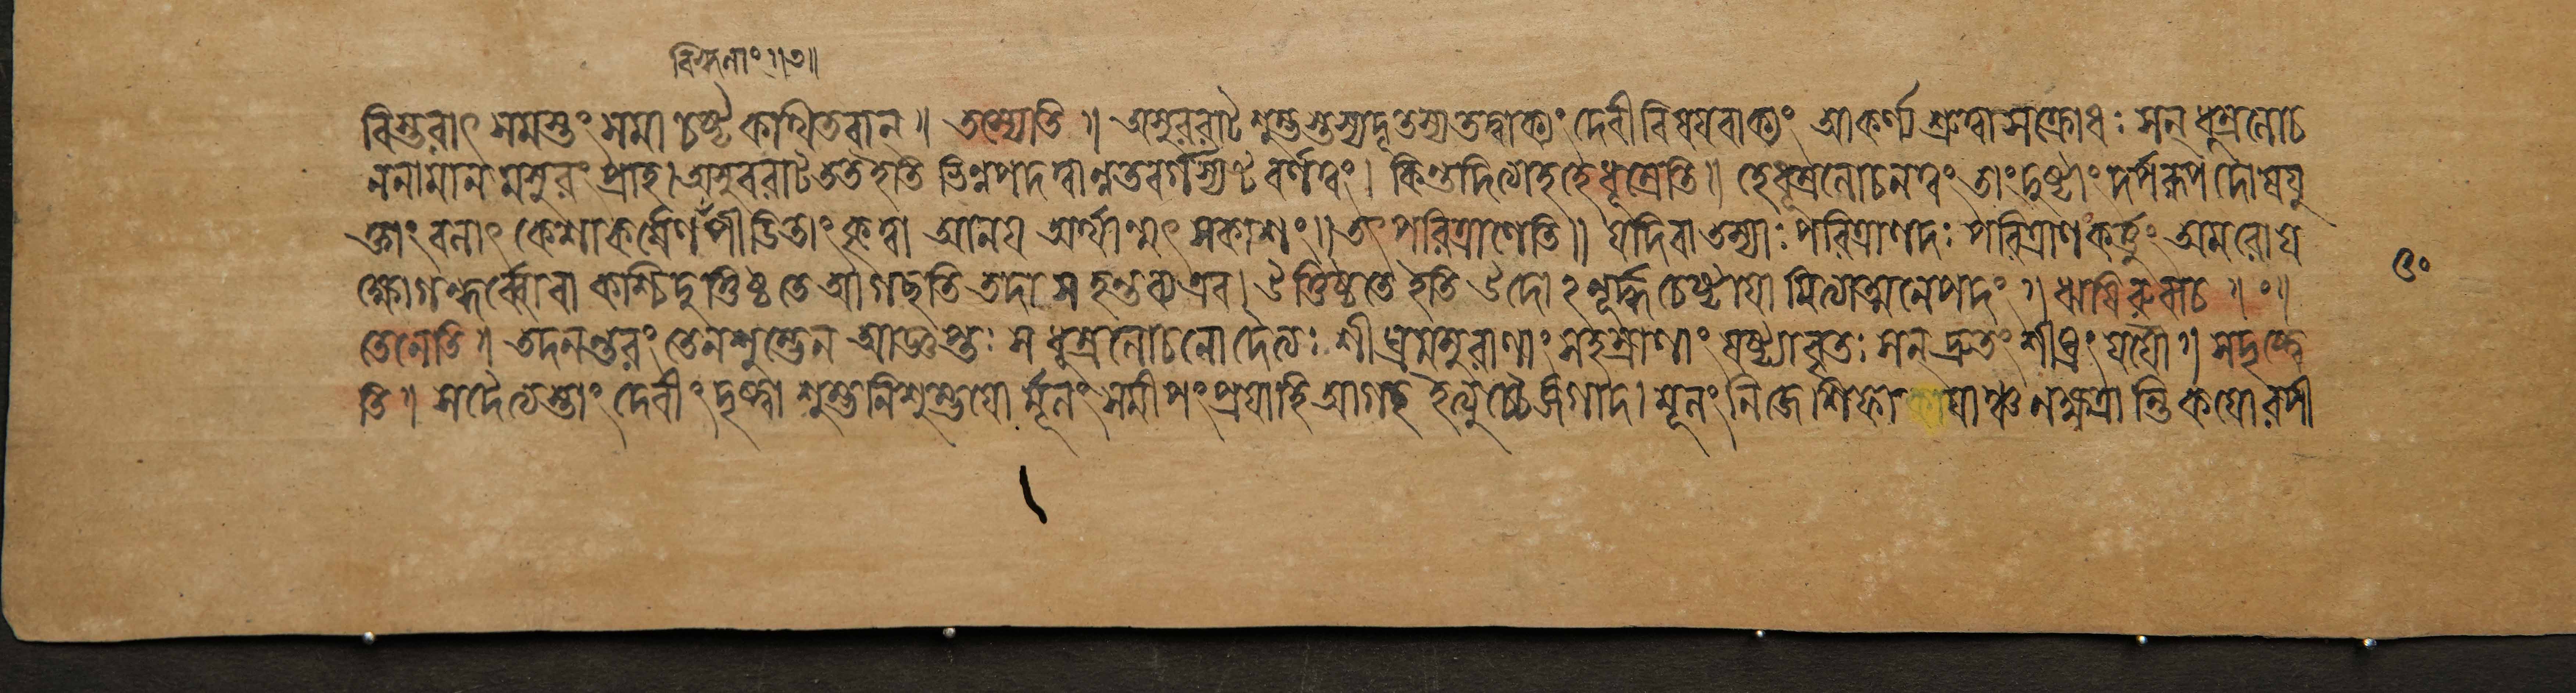 বিহ্মনাং ॥৩॥
বিস্তরাৎ সমস্তং সমাচষ্টৈ কথিতবান্ ॥ তস্যেতি ॥ অসুররাট শুম্ভস্তস্যদূতস্য তদ্বাক্যং দেবীবিষয়বাক্যং আকর্ণ্য শ্রুত্বা সক্রোধঃ সন্ ধূম্রলোচ
ননামানমসুরং প্রাহ। অসুররাট ততইতি ভিন্নপদত্বান্নতবর্গস্য টবর্গত্বং। কিন্তদিত্যাহ হেধূম্রেতি ॥ হেধূম্রলোচনত্বং তাং দুষ্টাং দর্পরূপদোষযু
ক্তাং বলাৎ কেশাকর্ষেণ পীডিতাং কৃত্বা আনয় অর্থান্মৎ সকাশং ॥ তৎ পরিত্রাণেতি ॥ যদিবা তস্যাঃ পরিত্রাণদঃ পরিত্রাণকর্ত্তুং অমরোয
ক্ষোগন্ধর্ব্বোবা কশ্চিদুত্তিষ্ঠতে আগছতি তদা স হন্তব্য এব। উত্তিষ্ঠতে ইতি উদোঽনূর্দ্ধচেষ্টায়ামিত্যাত্মনেপদং ॥ ঋষিরুবাচ ॥ ০॥
৫০
তেনেতি ॥ তদনন্তরং তেনশুম্ভেন আজ্ঞপ্তঃ স ধূম্রলোচনোদৈত্যঃ শীঘ্রমসুরাণাং সহস্রাণাং ষষ্ট্যাবৃতঃ সন্ দ্রুতং শীঘ্রং যযৌ ॥ সদৃষ্ট্বে
তি ॥ সদৈত্যস্তাং দেবীং দৃষ্ট্বা শুম্ভনিশুম্ভয়োর্মূলং সমীপং প্রয়াহি আগছ ইত্যুচ্চৈর্জগাদ। মূলং নিজে শিফা য়াঞ্চ নক্ষত্রান্তিকয়োরপী